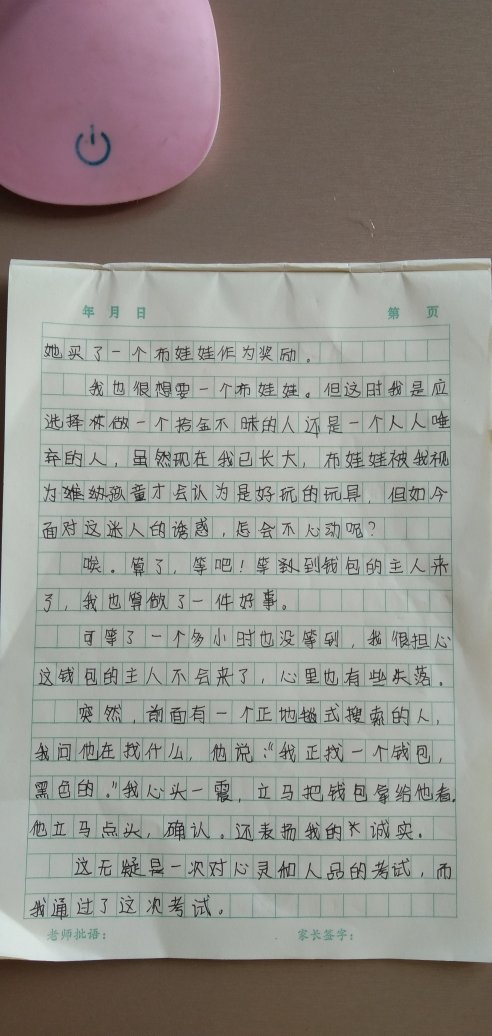 年 月 日 第 页
她买了一个布娃娃作为奖励。
我也很想要一个布娃娃。但这时我是应
选择做一个拾金不昧的人还是一个人人唾
弃的人，虽然现在我已长大，布娃娃被我视
为雉纳孩童才会认为是好玩的玩具，但如今
面对这迷人的诱惑，怎会不心动呢？
唉。算了，等吧！等到钱包的主人来
了，我也算做了一件好事。
可等了一个多小时也没等到，我很担心
这钱包的主人不会来了，心里也有些失落。
突然，前面有一个正地毯式搜索的人，
我问他在找什么，他说：“我正找一个钱包，
黑色的。”我心头一震，立马把钱包拿给他看。
他立马点头，确认。还表扬我的诚实。
这无疑是一次对心灵和人品的考试，而
我通过了这次考试。
老师批语： 家长签字：